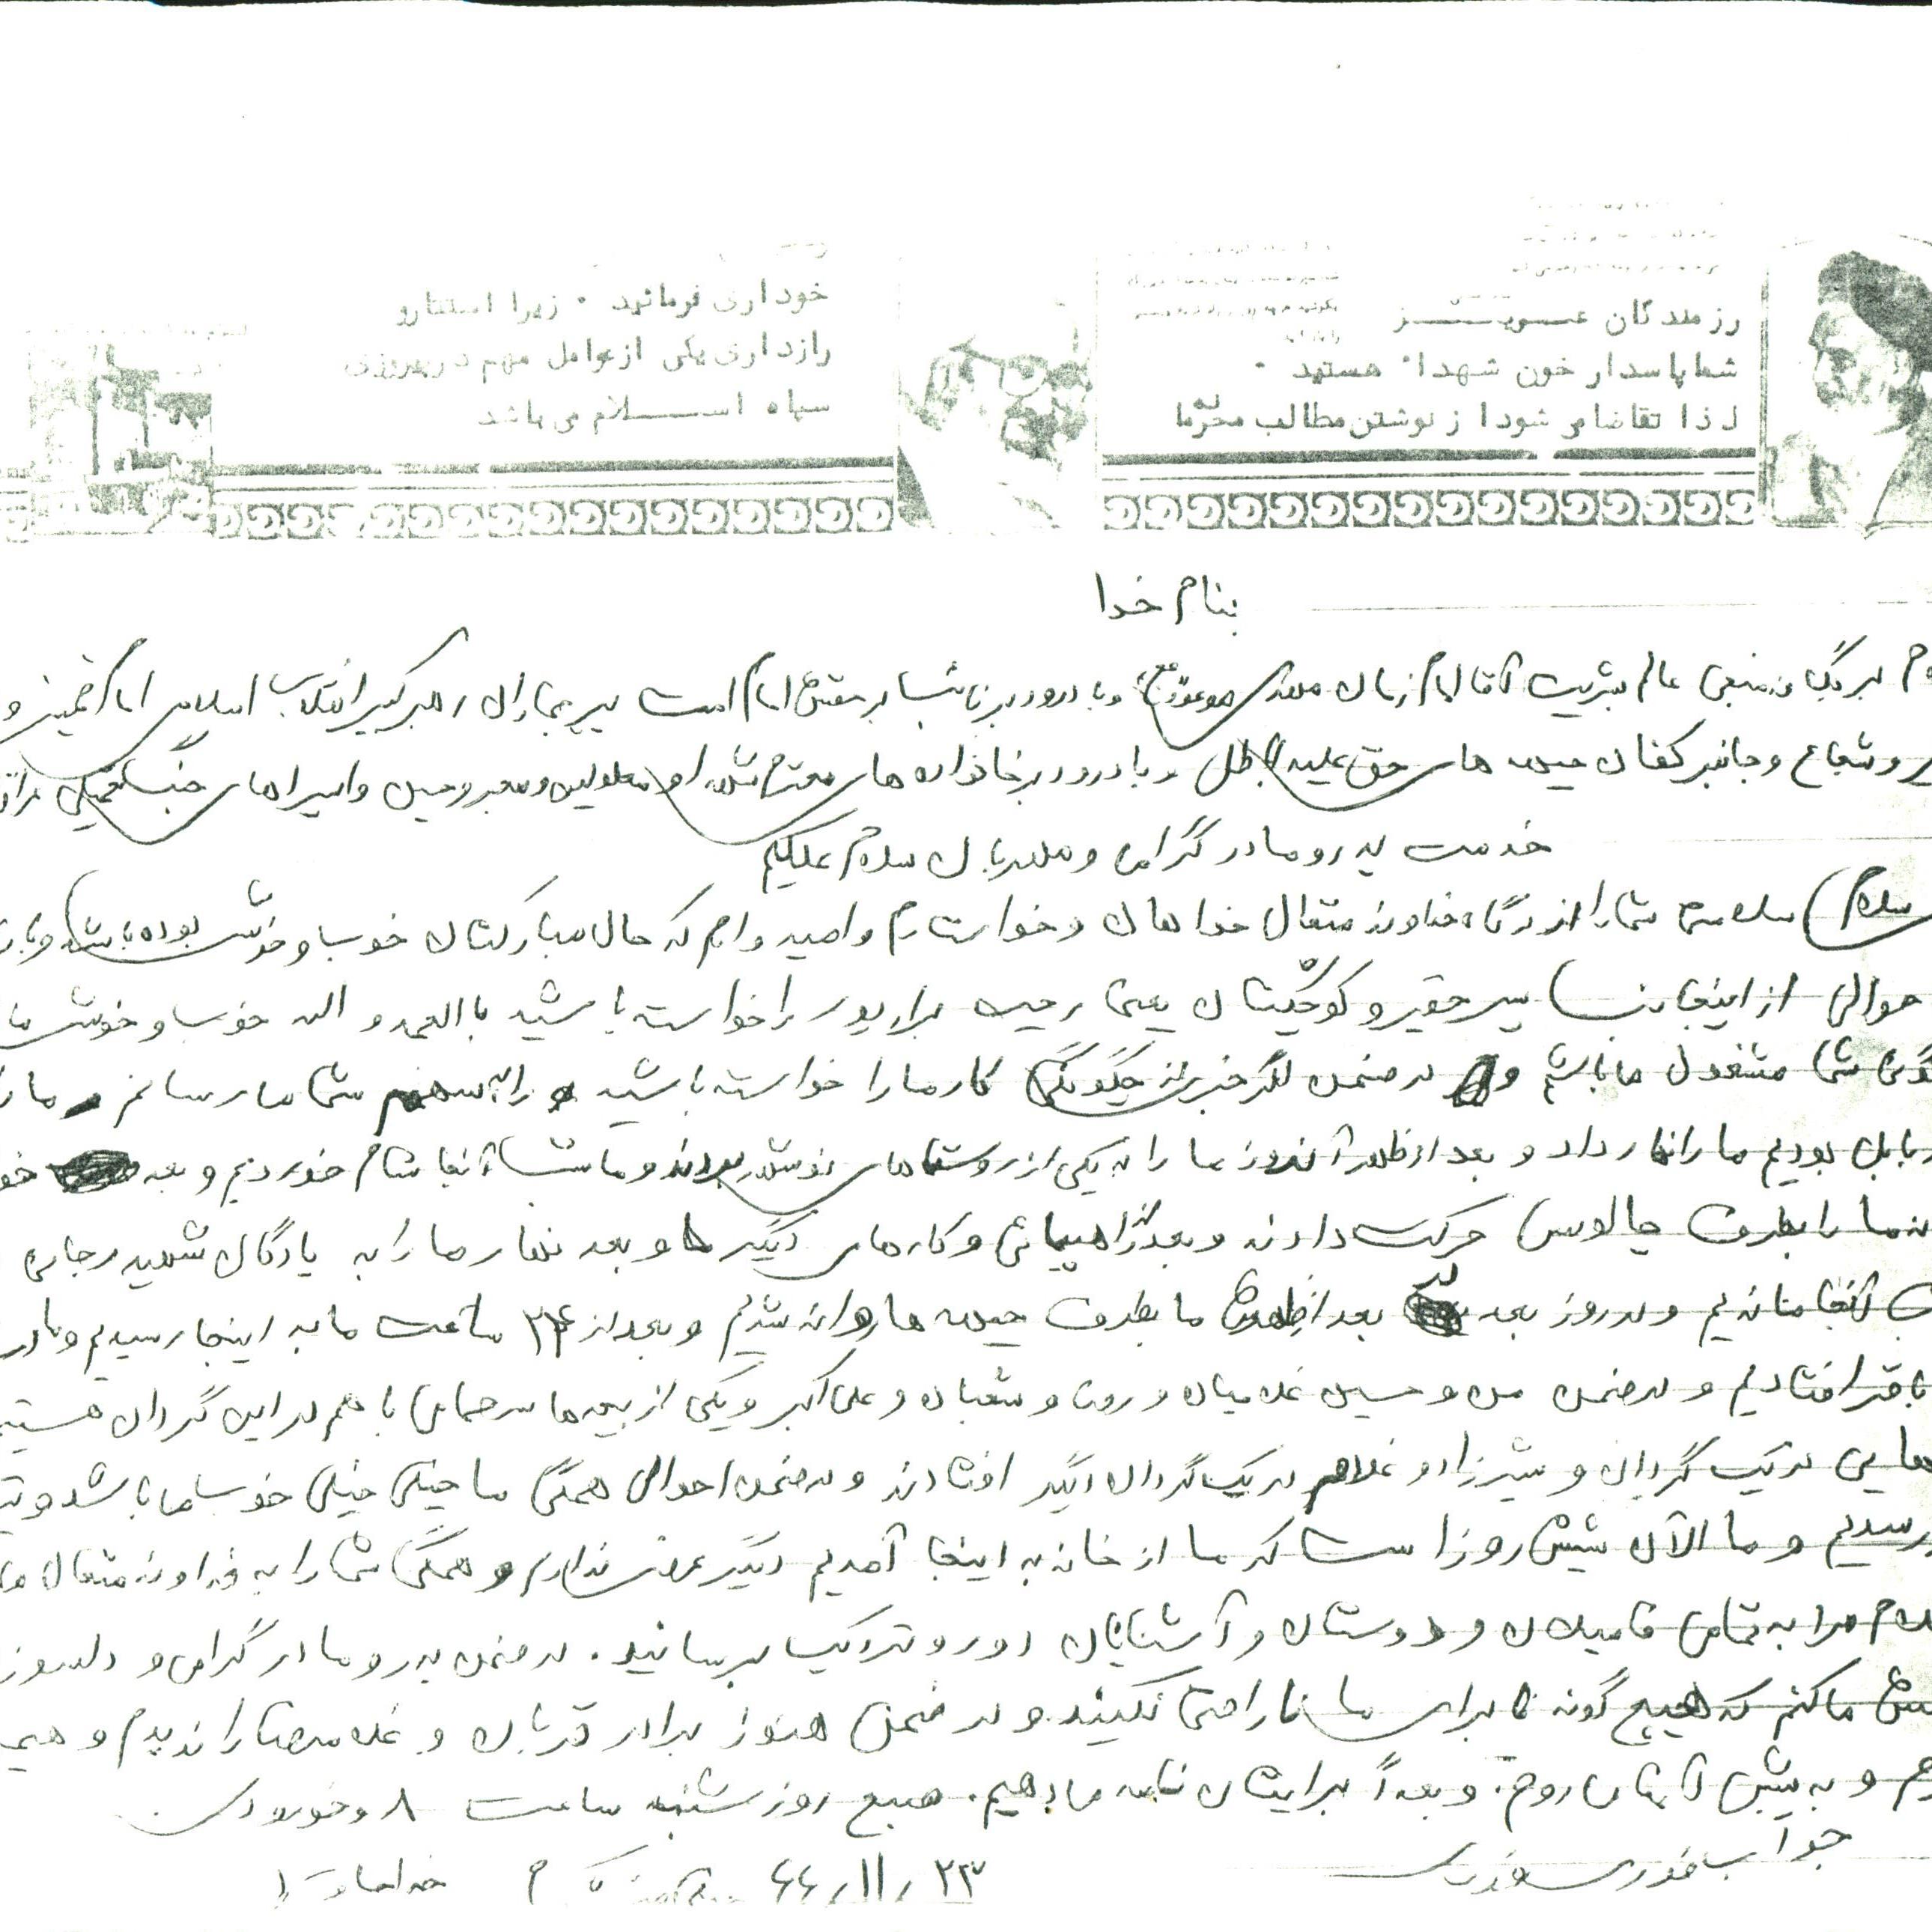 رزمندگان عـــزیـــز
شما پاسدار خون شهدا هستید ۰
لذا تقاضا می شود از نوشتن مطالب محرمانه
خودداری فرمائید ۰ زیرا استتار و
رازداری یکی از عوامل مهم در پیروزی
سپاه اســـلام می باشد
بنام خدا
بر یگانه منجی عالم بشریت آقا امام زمان مهدی موعود (عج) و با درود بر نائب بر حقش امام امت پیر جماران رهبر کبیر انقلاب اسلامی امام خمینی و
و شجاع و جانبرکفان جبهه های حق علیه باطل و با درود بر خانواده های محترم شهدا و معلولین و مجروحین و اسیرهای جنگ تحمیلی
خدمت پدر و مادر گرامی و مهربان سلام علیکم
سلام سلامتی شما را از درگاه خداوند متعال خداهان و خواستارم و امیدوارم که حال مبارکتان خوب و خوش بوده باشد و
حوالی از اینجانب پسر حقیر و کوچکتان یعنی رحیم را خواسته باشید باالحمد و الله خوب و خوش
شما مشغول ما باشم و در ضمن اگر خبر از چگونگی کار ما را خواسته باشید و را به سمع شما می رسانم
بابل بودیم ما را نهار داد و بعد از ظهر آنروز ما را به یکی از روستاهای نوشهر بردند و ما شب آنجا شام خوردیم و بعد
ما را بطرف چالوس حرکت دادند و بعد از راهپیمائی و کارهای دیگر و بعد نهار ما را به پادگان شهید رجایی
آنجا ماندیم و در روز بعد بعد از ظهرش ما بطرف جبهه ها روانه شدیم و بعد از ۲۴ ساعت ما به اینجا رسیدیم و
باقر افتادیم و در ضمن من و حسین غلامیان و رضا و شعبان و علی اکبر و یکی از بچه ها سرحمامی با هم در این گردان هستیم
در یک گردان و شیرزاد و غلام در یک گردان دیگر افتادند و در ضمن احوال همگی ما خیلی خیلی خوب می باشد و
رسیدیم و ما الآن شیش روز است که ما از خانه به اینجا آمدیم دیگر عرضی ندارم و همگی شما را به خداوند متعال
سلام مرا به تمامی فامیلان و دوستان و آشنایان دور و نزدیک برسانید . در ضمن پدر و مادر گرامی و دلسوز
که هیچ گونه برای ما ناراحتی نکنید و در ضمن هنوز برادر قربان و غلامرضا را ندیدم و
و به پیش آنان روم . و بعداً برایتان نامه می دهیم . صبح روز شنبه ساعت ۸
جواب فوری فوری
۲۳ ر ۱۱ ر ۶۶